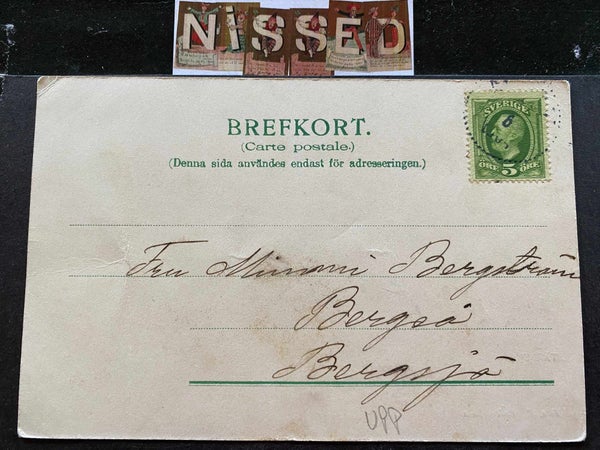 NISSED
BREFKORT.
(Carte postale.)
(Denna sida användes endast för adresseringen.)
SVERIGE
6
ÖRE 5 ÖRE
Fru Mimmi Bergström
Bergså
Bergsjö
UPP